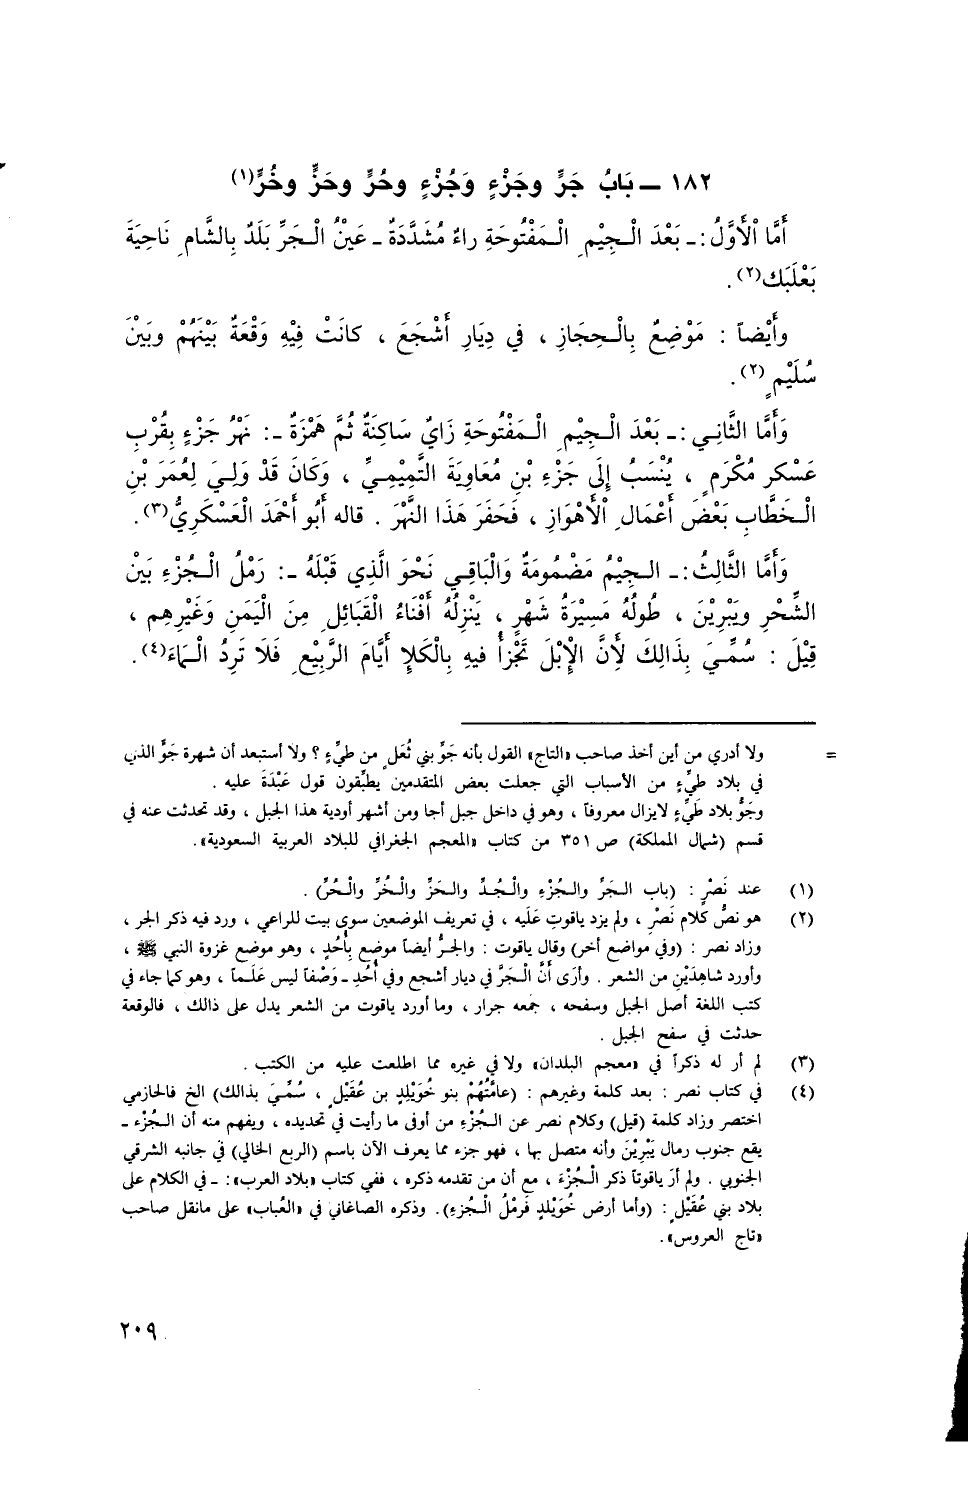 ١٨٢ ــ بَابُ جَرٍّ وجَزْءٍ وَجُزْءٍ وحُرٍّ وحَزٍّ وخُرٍّ(١)
أَمَّا ٱلْأَوَّلُ :ـ بَعْدَ الْـجِيْمِ الْـمَفْتُوحَةِ راءٌ مُشَدَّدَةٌ ـ عَيْنُ الْـجَرِّ بَلَدٌ بِالشَّامِ نَاحِيَةَ
بَعْلَبَك(٢) .
وأَيْضاً : مَوْضِعٌ بِالْـحِجَازِ ، في دِيَارِ أَشْجَعَ ، كانَتْ فِيْهِ وَقْعَةٌ بَيْنَهُمْ وبَيْنَ
سُلَيْمٍ(٢).
وَأَمَّا الثَّانِـي :ـ بَعْدَ الْـجِيْمِ الْـمَفْتُوحَةِ زَايٌ سَاكِنَةٌ ثُمَّ هَمْزَةٌ ـ: نَهْرُ جَزْءٍ بِقُرْبِ
عَسْكر مُكْرَمٍ ، يُنْسَبُ إِلَى جَزْءِ بْنِ مُعَاوِيَةَ التَّمِيْمِـيِّ ، وَكَانَ قَدْ وَلِـيَ لِعُمَرَ بْنِ
الْـخَطَّابِ بَعْضَ أَعْمَالِ ٱلْأَهْوَازِ ، فَحَفَرَ هَذَا النَّهْرَ . قاله أَبُو أَحْمَدَ الْعَسْكَرِيُّ(٣).
وَأَمَّا الثَّالِثُ :ـ الـجِيْمُ مَضْمُومَةٌ وَالْبَاقِـي نَحْوَ الَّذِي قَبْلَهُ ـ: رَمْلُ الْـجُزْءِ بَيْنَ
الشِّحْرِ ويَبْرِيْنَ ، طُولُهُ مَسِيْرَةُ شَهْرٍ ، يَنْزِلُهُ أَفْنَاءُ الْقَبَائِلِ مِنَ الْيَمَنِ وَغَيْرِهِم ،
قِيْلَ : سُمِّـيَ بِذَالِكَ لِأَنَّ الإِبْلَ تَجْزأُ فيهِ بِالْكَلإِ أَيَّامَ الرَّبِيْعِ فَلَا تَرِدُ الْـمَاءَ(٤).
= ولا أدري من أين أخذ صاحب «التاج» القول بأنه جَوِّ بني ثُعَلٍ من طيِّءٍ ؟ ولا أستبعد أن شهرة جَوٍّ الذي
في بلاد طيِّءٍ من الأسباب التي جعلت بعض المتقدمين يطبِّقون قول عَبْدَةَ عليه .
وجَوُّ بلاد طَيِّءٍ لايزال معروفاً ، وهو في داخل جبل أجا ومن أشهر أودية هذا الجبل ، وقد تحدثت عنه في
قسم (شمال المملكة) ص ٣٥١ من كتاب «المعجم الجغرافي للبلاد العربية السعودية».
(١) عند نَصْرٍ : (باب الـجَرِّ والـجُزْءِ والْـجُدِّ والـحَزِّ والْـخُرِّ والْـحُرِّ) .
(٢) هو نصُّ كلام نَصْرٍ ، ولم يزد ياقوت عَلَيه ، في تعريف الموضعين سوى بيت للراعي ، ورد فيه ذكر الجر ،
وزاد نصر : (وفي مواضع أخر) وقال ياقوت : والجرُّ أيضاً موضع بِأُحُدٍ ، وهو موضع غزوة النبي ﷺ ،
وأورد شاهِدَيْنِ من الشعر . وأرَى أنَّ الْـجَرَّ في ديار أشجع وفي أُحُدٍ ـ وَصْفاً ليس عَلَماً ، وهو كما جاء في
كتب اللغة أصل الجبل وسفحه ، جمعه جرار ، وما أورد ياقوت من الشعر يدل على ذالك ، فالوقعة
حدثت في سفح الجبل .
(٣) لم أر له ذكراً في «معجم البلدان» ولا في غيره مما اطلعت عليه من الكتب .
(٤) في كتاب نصر : بعد كلمة وغيرهم : (عامَّتُهُمْ بنو خُوَيْلِدِ بن عُقَيْلٍ ، سُمِّـيَ بذالك) الخ فالحازمي
اختصر وزاد كلمة (قيل) وكلام نصر عن الـجُزْءِ من أوفى ما رأيت في تحديده ، ويفهم منه أن الـجُزْء ـ
يقع جنوب رمال يَبْرِيْنَ وأنه متصل بها ، فهو جزء مما يعرف الآن باسم (الربع الخالي) في جانبه الشرقي
الجنوبي . ولم أرَ ياقوتاً ذكر الْـجُزْءَ ، مع أن من تقدمه ذكره ، ففي كتاب «بلاد العرب»: ـ في الكلام على
بلاد بني عُقَيْلٍ : (وأما أرض خُوَيْلدٍ فَرمْلُ الْـجُزءِ). وذكره الصاغاني في «العُباب» على مانقل صاحب
«تاج العروس».
٢٠٩